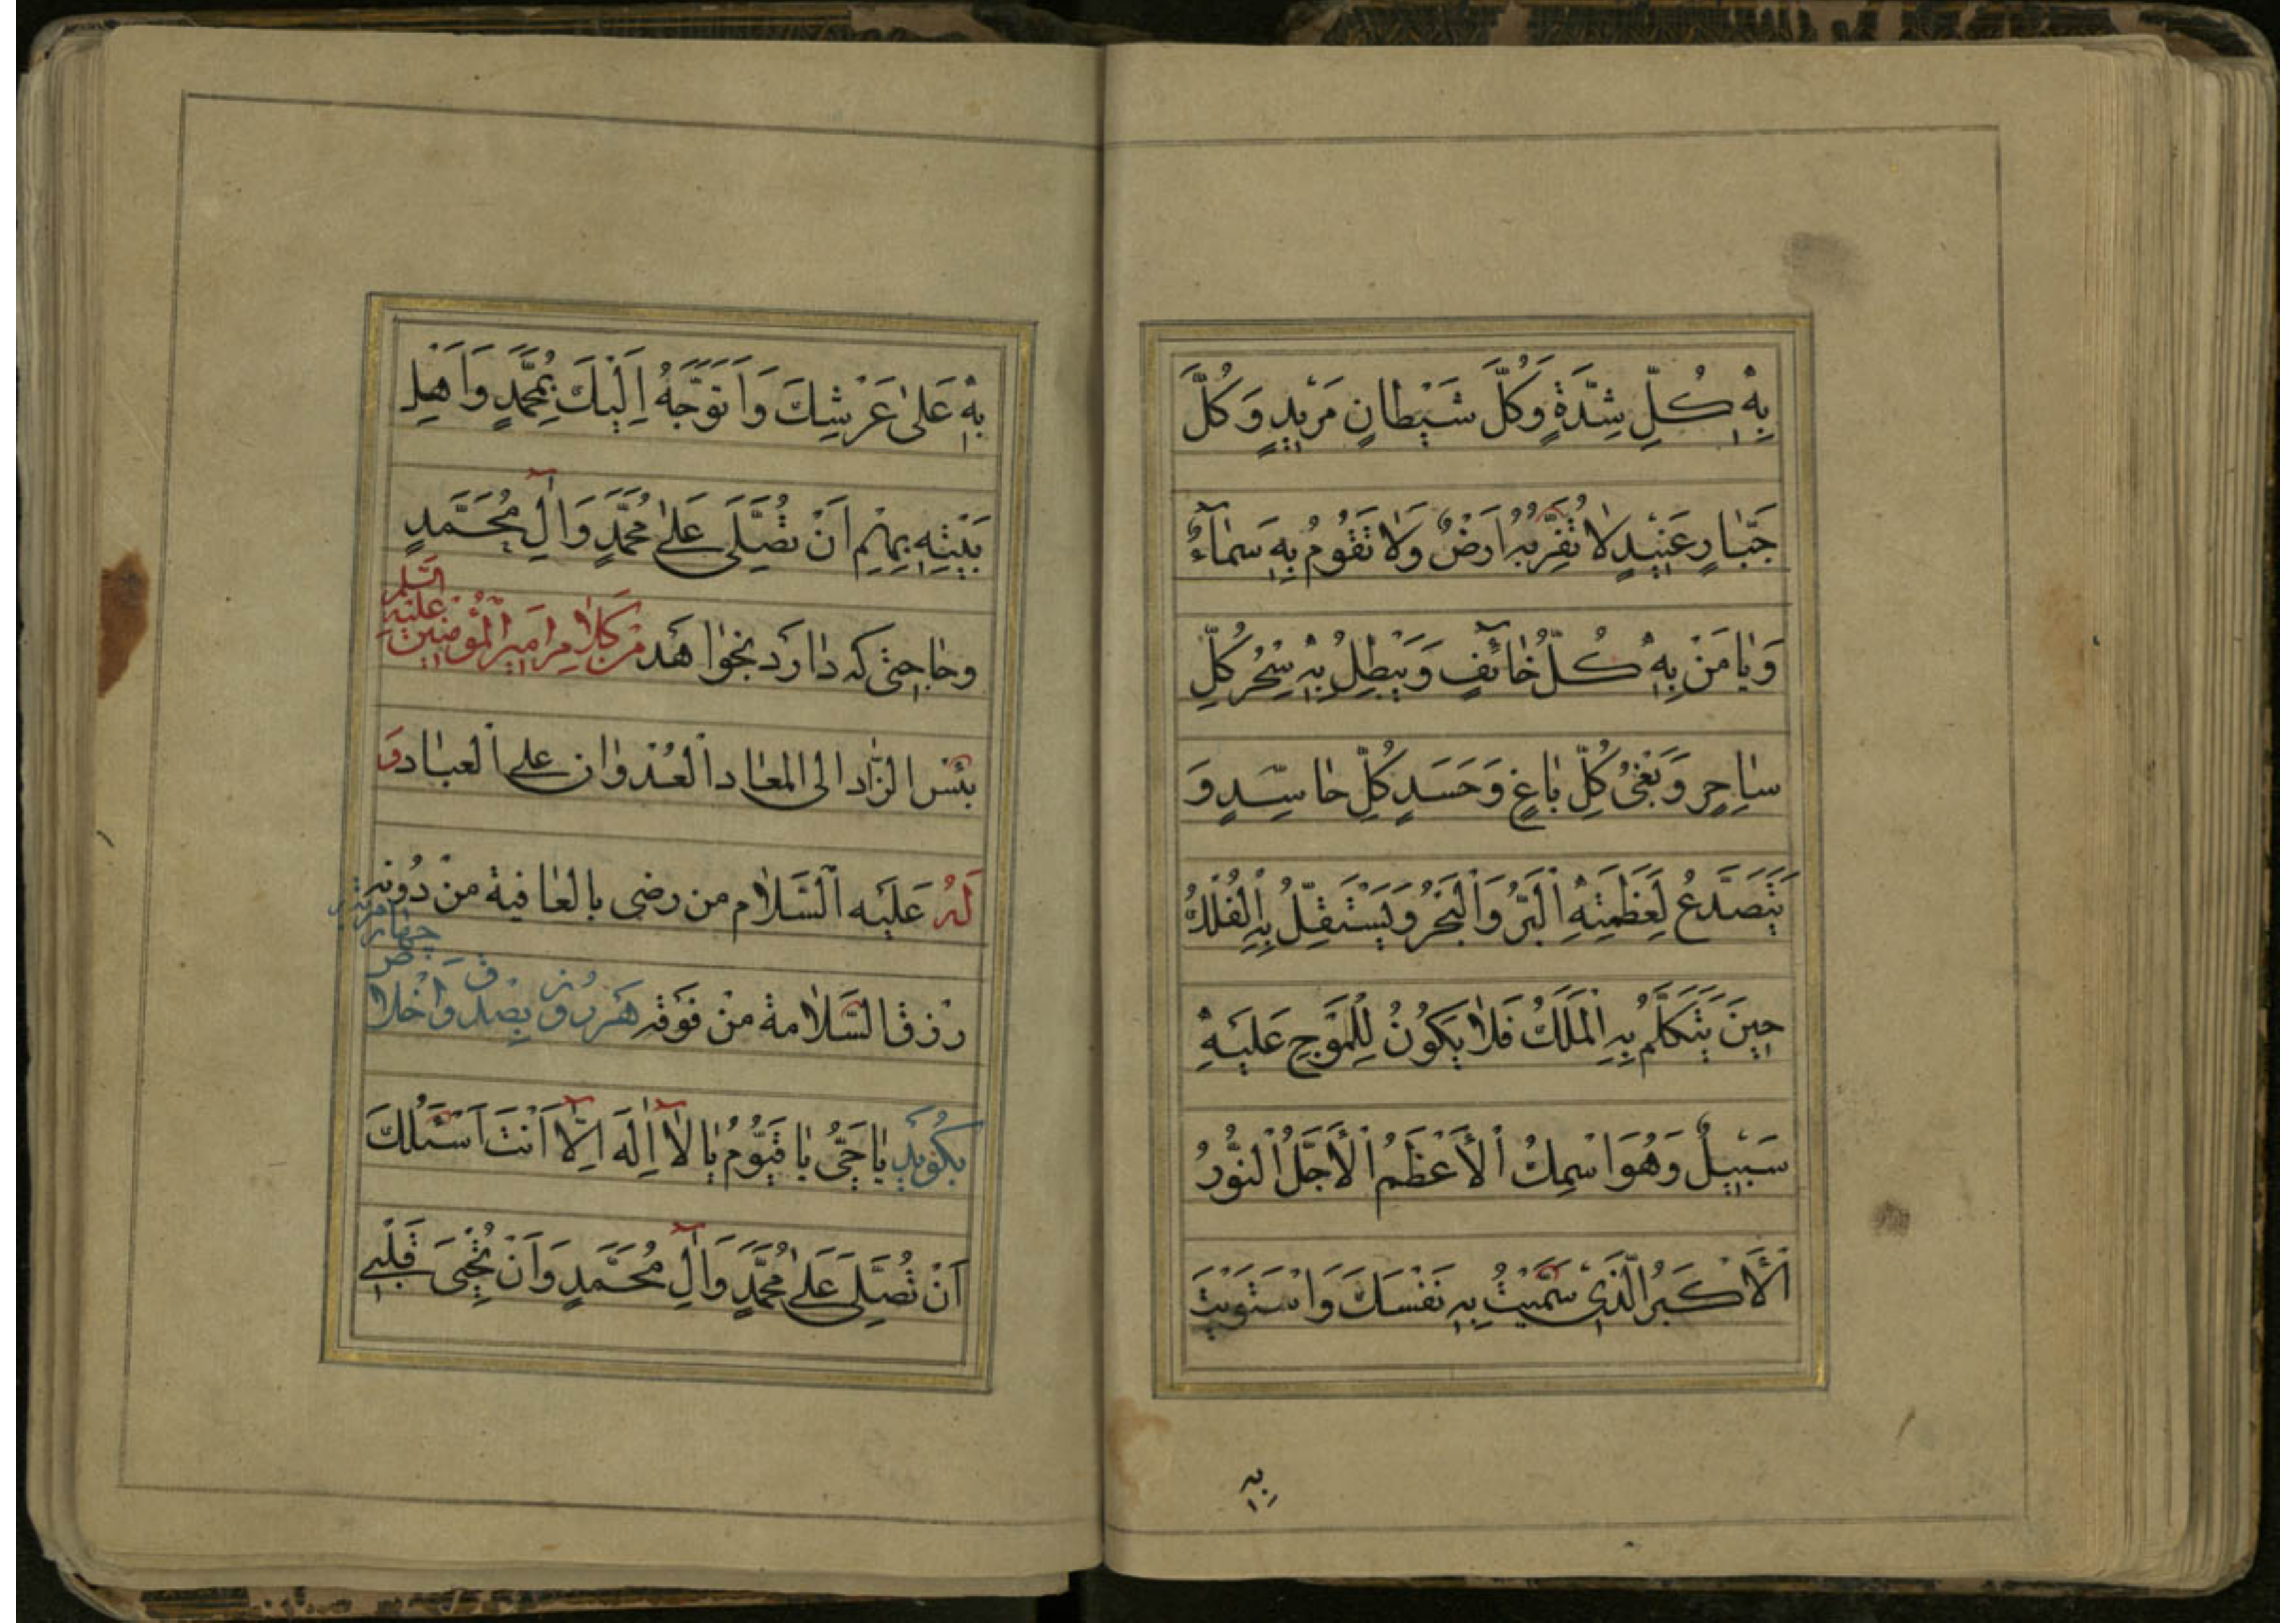 بِهِ كُلِّ شِدَّةٍ وَكُلَّ شَيْطانٍ مَريدٍ وَكُلَّ
جَبّارٍ عَنيدٍ لا تُقِرُّ بِهِ اَرْضٌ وَلا تَقُومُ بِهِ سَماءٌ
وَيا مَنْ بِهِ كُلُّ خائِفٍ وَيَبْطِلُ بِهِ سِحْرُ كُلِّ
ساحِرٍ وَبَغْىُ كُلِّ باغٍ وَحَسَدِ كُلِّ حاسِدٍ وَ
يَتَصَدَّعُ لِعَظَمَتِهِ الْبَرُّ وَالْبَحْرُ وَيَسْتَقِلُّ بِهِ الْفُلْكُ
حينَ يَتَكَلَّمُ بِهِ الْمَلَكُ فَلا يَكُونُ لِلْمَوْجِ عَلَيْهِ
سَبيلٌ وَهُوَ اسْمِكَ الْأَعْظَمُ الْأَجَلُّ النُّورُ
الْأَكْبَرُ الَّذى سَمَّيْتَ بِهِ نَفْسَكَ وَاسْتَوَيْتَ
بِهِ
بِهِ عَلىٰ عَرْشِكَ وَاَتَوَجَّهُ اِلَيْكَ بِمُحَمَّدٍ وَاَهْلِ
بَيْتِهِ بِهِمْ اَنْ تُصَلِّىَ عَلىٰ مُحَمَّدٍ وَآلِ مُحَمَّدٍ
وحاجتى كه دارد بخواهد من كلام امير المؤمنين عليه السلم
بئس الزاد الى المعاد العدوان على العباد و
لَهُ عَلَيْهِ السَّلام من رضى بالعافية من دونه
رزق السَّلامة منْ فوقه هر روز بصدق و اخلاص چهار مرتبه
بگويد يا حَىُّ يا قَيُّومُ يا لا اِلٰهَ اِلّا اَنْتَ اَسْئَلُكَ
اَنْ تُصَلِّىَ عَلىٰ مُحَمَّدٍ وَآلِ مُحَمَّدٍ وَاَنْ تُحْيِىَ قَلْبى